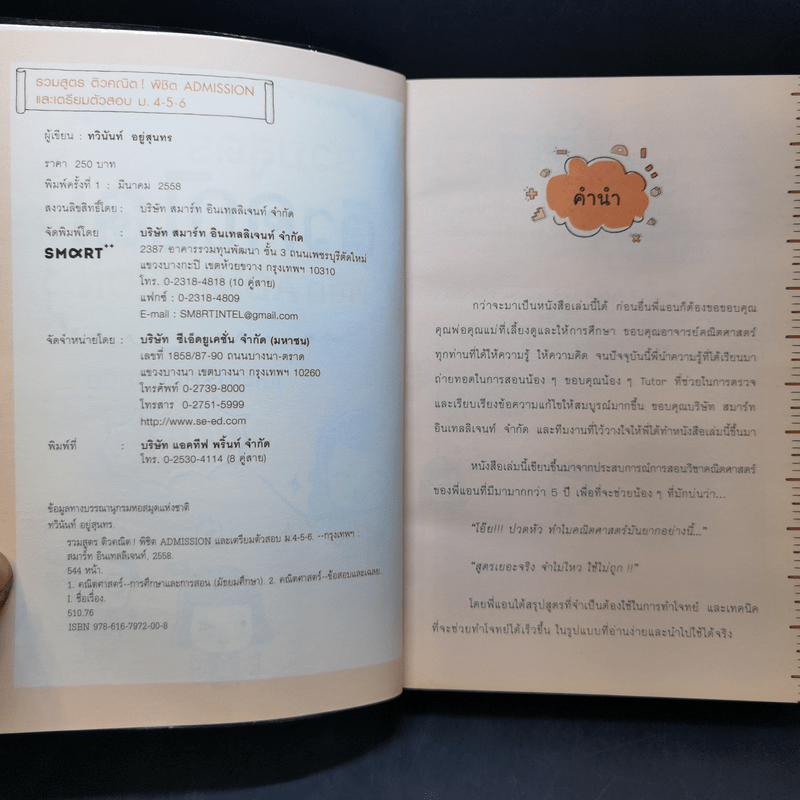 รวมสูตร ติวคณิต! พิชิต ADMISSION
และเตรียมตัวสอบ ม. 4-5-6
ผู้เขียน : ทวินันท์ อยู่สุนทร
ราคา 250 บาท
พิมพ์ครั้งที่ 1 : มีนาคม 2558
สงวนลิขสิทธิ์โดย : บริษัท สมาร์ท อินเทลลิเจนท์ จำกัด
จัดพิมพ์โดย : บริษัท สมาร์ท อินเทลลิเจนท์ จำกัด
SMART++ 2387 อาคารรวมทุนพัฒนา ชั้น 3 ถนนเพชรบุรีตัดใหม่
แขวงบางกะปิ เขตห้วยขวาง กรุงเทพฯ 10310
โทร. 0-2318-4818 (10 คู่สาย)
แฟกซ์ : 0-2318-4809
E-mail : SM8RTINTEL@gmail.com
จัดจำหน่ายโดย : บริษัท ซีเอ็ดยูเคชั่น จำกัด (มหาชน)
เลขที่ 1858/87-90 ถนนบางนา-ตราด
แขวงบางนา เขตบางนา กรุงเทพฯ 10260
โทรศัพท์ 0-2739-8000
โทรสาร 0-2751-5999
http://www.se-ed.com
พิมพ์ที่ : บริษัท แอคทีฟ พริ้นท์ จำกัด
โทร. 0-2530-4114 (8 คู่สาย)
ข้อมูลทางบรรณานุกรมหอสมุดแห่งชาติ
ทวินันท์ อยู่สุนทร
รวมสูตร ติวคณิต! พิชิต ADMISSION และเตรียมตัวสอบ ม.4-5-6. --กรุงเทพฯ :
สมาร์ท อินเทลลิเจนท์, 2558.
544 หน้า.
1. คณิตศาสตร์--การศึกษาและการสอน (มัธยมศึกษา). 2. คณิตศาสตร์--ข้อสอบและเฉลย.
I. ชื่อเรื่อง.
510.76
ISBN 978-616-7972-00-8
คำนำ
กว่าจะมาเป็นหนังสือเล่มนี้ได้ ก่อนอื่นพี่แอนก็ต้องขอขอบคุณ
คุณพ่อคุณแม่ที่เลี้ยงดูและให้การศึกษา ขอบคุณอาจารย์คณิตศาสตร์
ทุกท่านที่ได้ให้ความรู้ ให้ความคิด จนปัจจุบันนี้พี่นำความรู้ที่ได้เรียนมา
ถ่ายทอดในการสอนน้อง ๆ ขอบคุณน้อง ๆ Tutor ที่ช่วยในการตรวจ
และเรียบเรียงข้อความแก้ไขให้สมบูรณ์มากขึ้น ขอบคุณบริษัท สมาร์ท
อินเทลลิเจนท์ จำกัด และทีมงานที่ไว้วางใจให้พี่ได้ทำหนังสือเล่มนี้ขึ้นมา
หนังสือเล่มนี้เขียนขึ้นมาจากประสบการณ์การสอนวิชาคณิตศาสตร์
ของพี่แอนที่มีมามากกว่า 5 ปี เพื่อที่จะช่วยน้อง ๆ ที่มักบ่นว่า...
"โอ๊ย!!! ปวดหัว ทำไมคณิตศาสตร์มันยากอย่างนี้..."
"สูตรเยอะจริง จำไม่ไหว ใช้ไม่ถูก !!"
โดยพี่แอนได้สรุปสูตรที่จำเป็นต้องใช้ในการทำโจทย์ และเทคนิค
ที่จะช่วยทำโจทย์ได้เร็วขึ้น ในรูปแบบที่อ่านง่ายและนำไปใช้ได้จริง